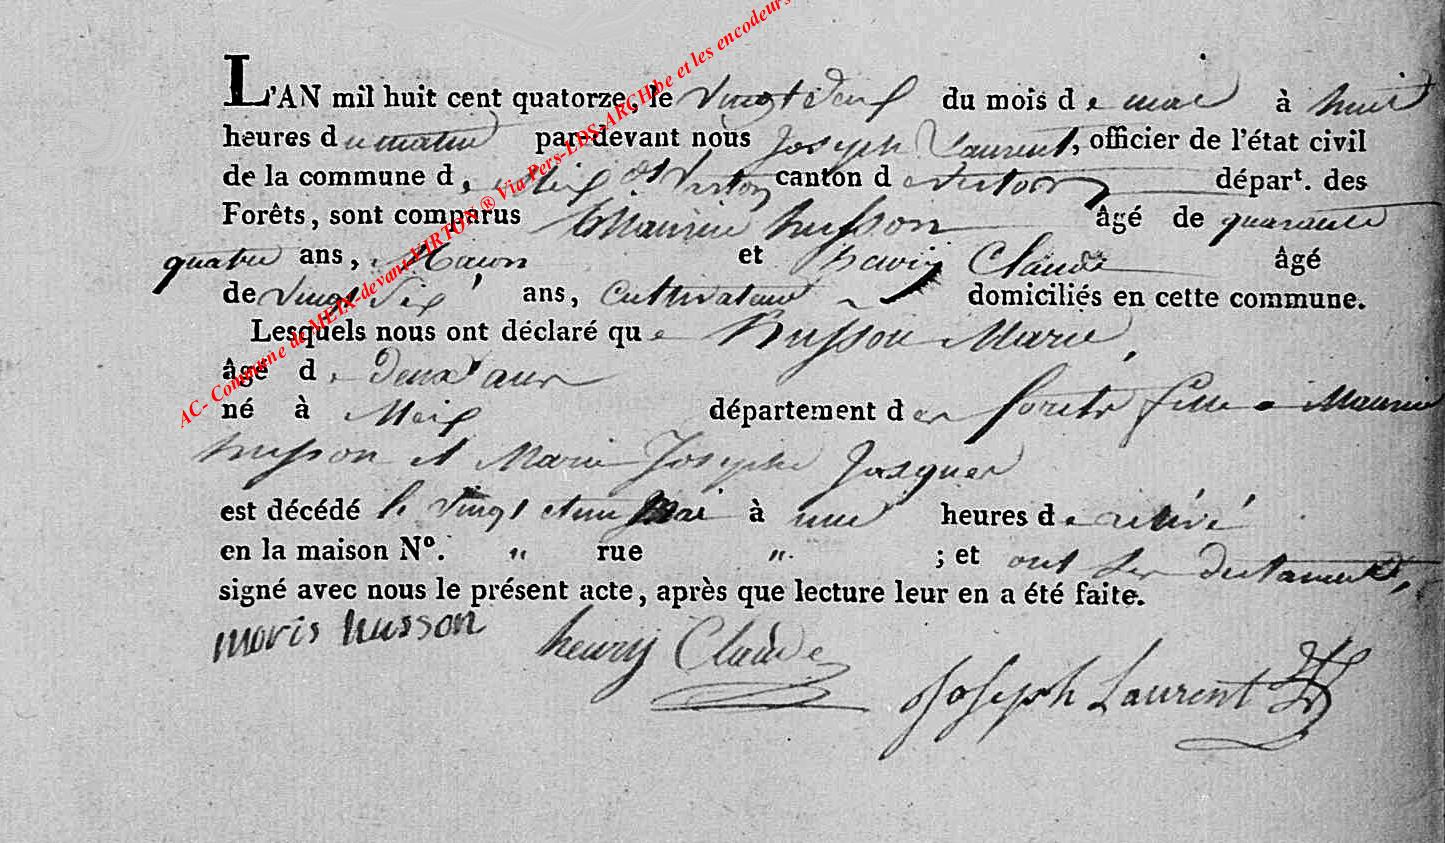 L'AN mil huit cent quatorze, le Vingt deux du mois de mai à huit
heures du matin par-devant nous Joseph Laurent, officier de l'état civil
de la commune d, Meix dt Virton canton d e virton départ. des
Forêts, sont comparus Maurice husson âgé de quarante
quatre ans, et henry Claude âgé
de Vingt Six ans, Cultivateur domiciliés en cette commune.
Lesquels nous ont déclaré que husson Marie,
âgé d. Deux ans
né à Meix département des forets fille a Maurice
husson et Marie Josephe Jasquer
est décédé le vingt et un Mai à une heures de relivé
en la maison N°. " rue " ; et ont les
signé avec nous le présent acte, après que lecture leur en a été faite.
moris husson henry Claude Joseph Laurent
AC- Commune de MEIX-devant-VIRTON ® Via Pers-EDS-ARCH.be et les encodeurs